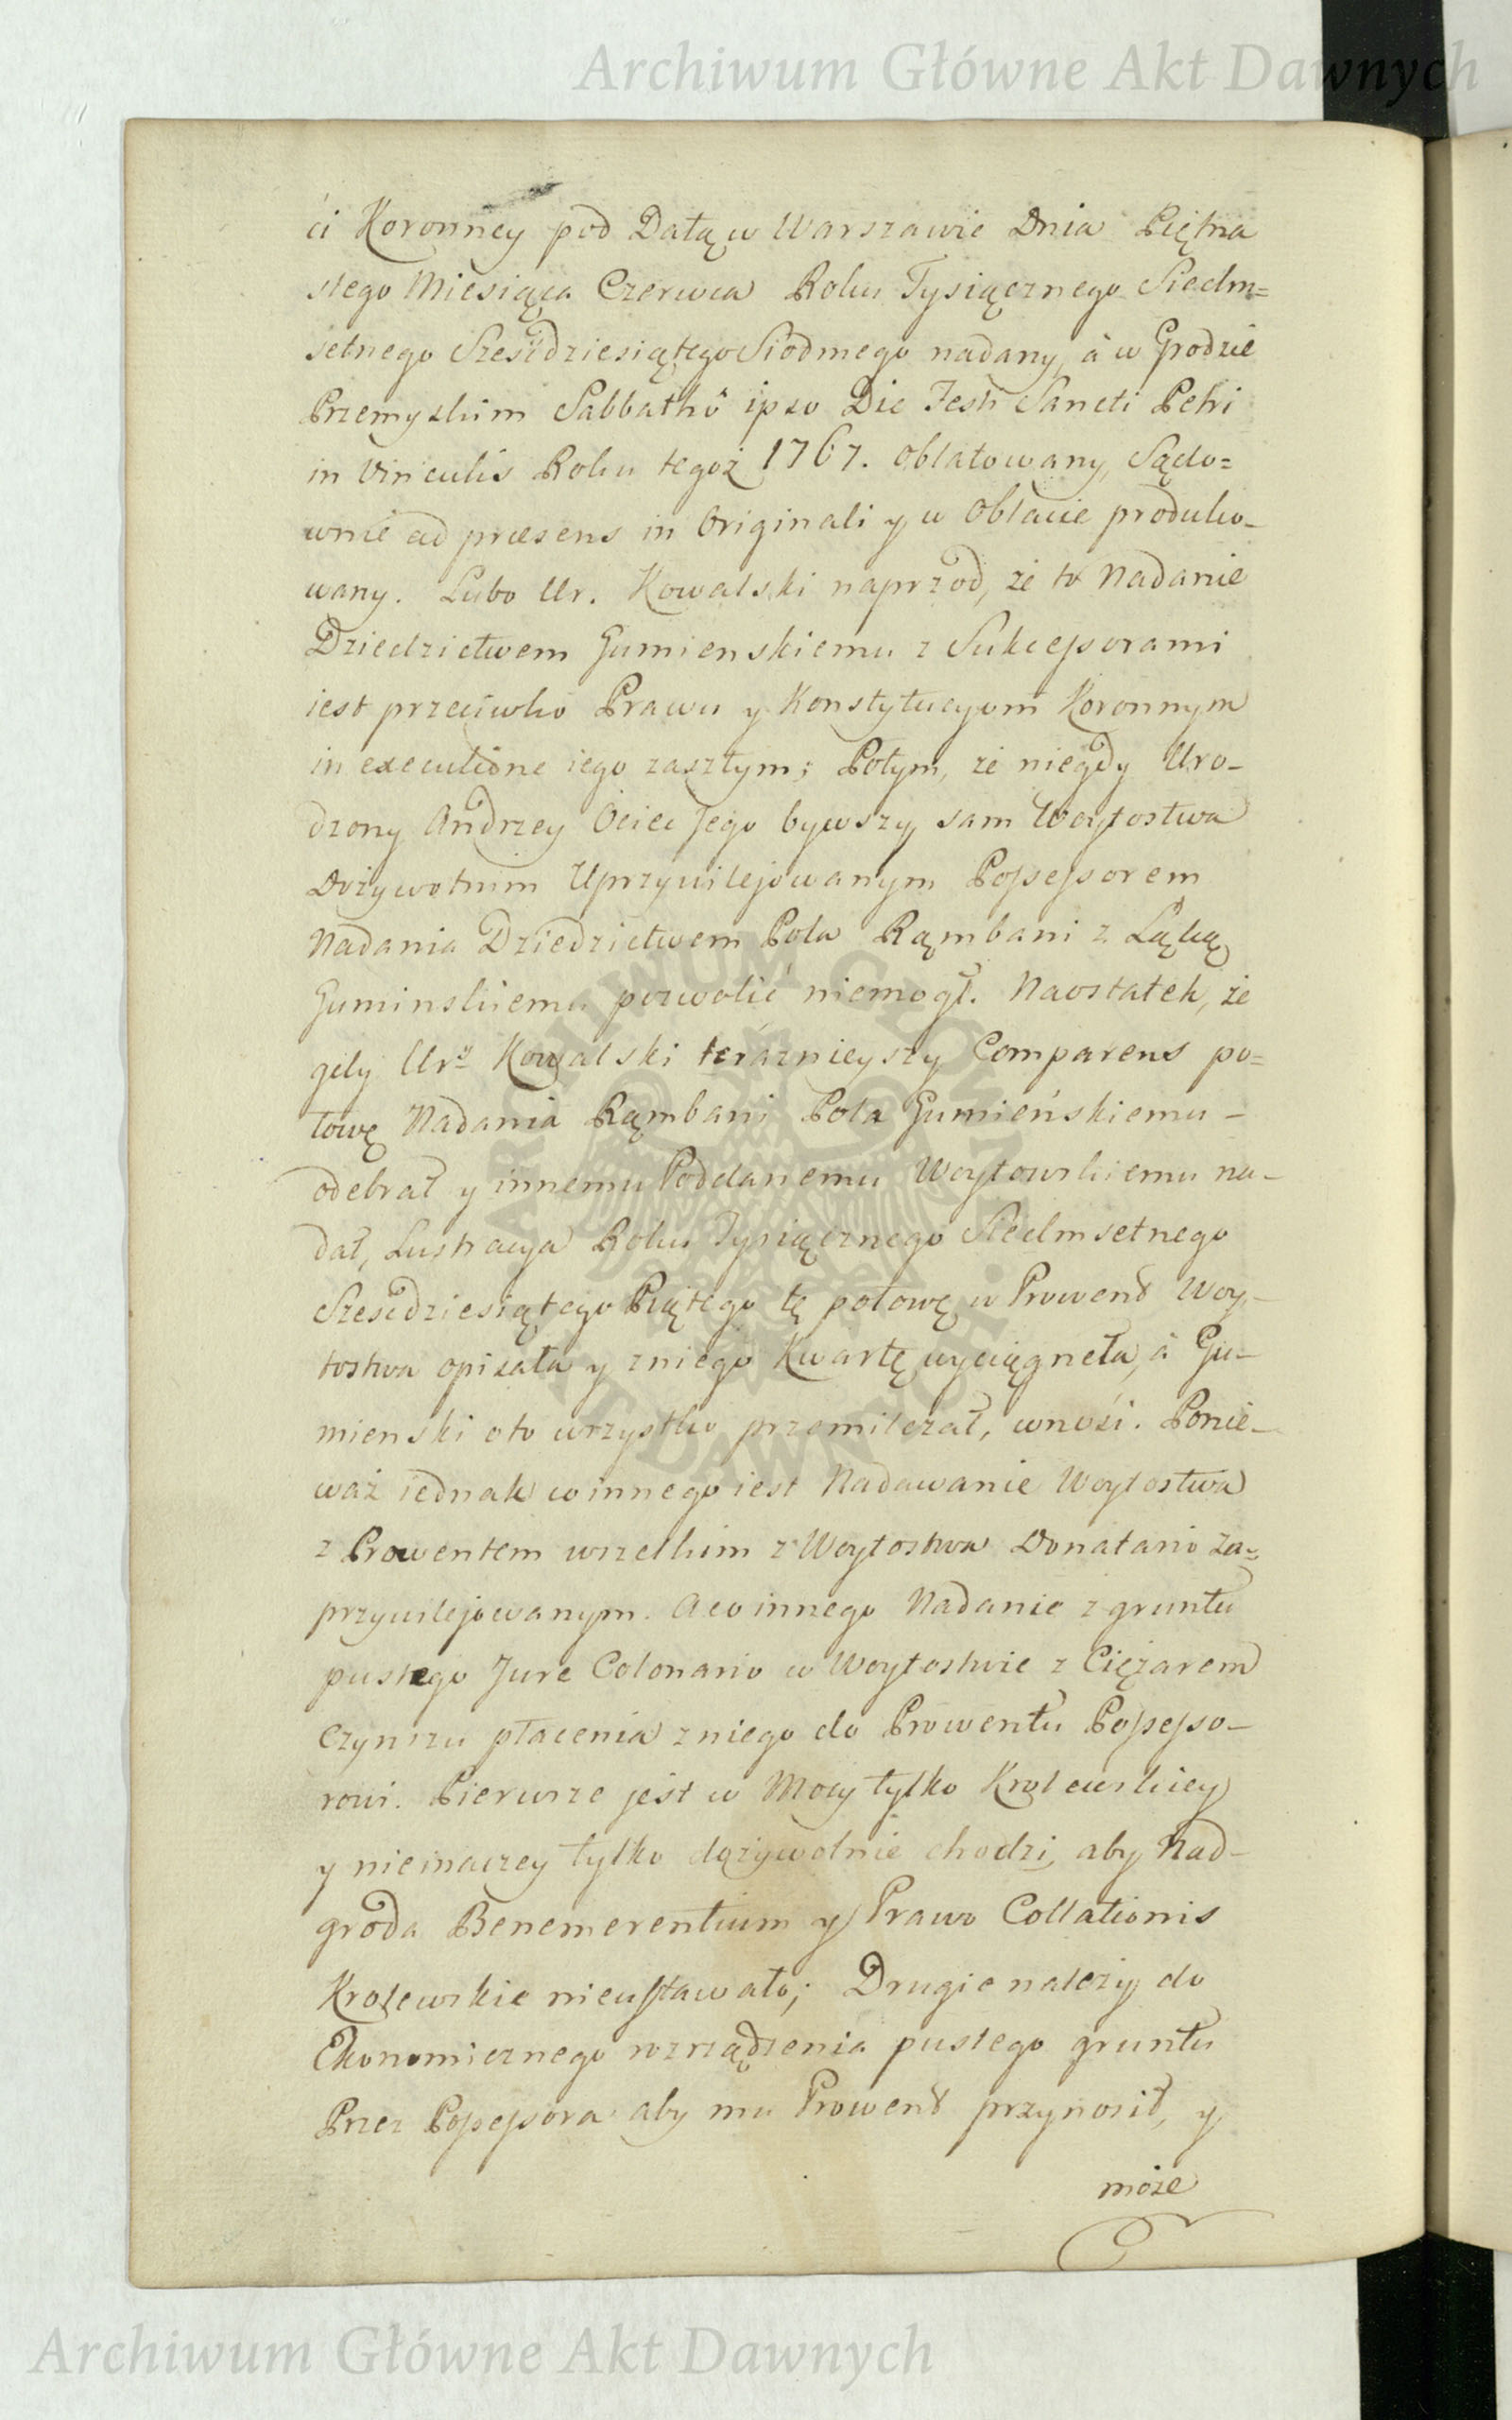 Archiwum Główne Akt Dawnych
ci Koronney pod Datą w Warszawie Dnia Piętna
stego Miesiąca Czerwca Roku Tysiącznego Siedm=
setnego Sześćdziesiątego Siodmego nadany, á w Grodzie
Przemyskim Sabbathô ipso Die Festi Sancti Petri
in Vinculis Roku tegoż 1767. oblatowany, Sądo=
wnie ad præsens in Originali y w Oblacie produko-
wany. Lubo Ur. Kowalski naprzod, że to Nadanie
Dziedzictwem Gumienskiemu z Sukcessorami
iest przeciwko Prawu y Konstytucyom Koronnym
in executione iego zaszłym; Potym, że niegdy Uro-
dzony Andrzey Ociec Jego bywszy sam Woytostwa
Dożywotnim Uprzywilejowanym Possessorem
Nadania Dziedzictwem Pola Rąmbani z Łąką
Guminskiemu pozwolić niemogł. Naostatek, że
gdy Ur: Kowalski teraznieyszy Comparens po=
łowę Nadania Rąmbani Pola Gumieńskiemu -
odebrał y innemu Poddanemu Woytowskiemu na-
dał, Lustracya Roku Tysiącznego Siedmsetnego
Sześćdziesiątego Piątego tę połowę w Prowent Woy-
tostwa opisała y zniego Kwartę wyciągneła, á Gu-
mienski oto wszystko przemilczał, wnosi. Ponie-
waż iednak co innego iest Nadawanie Woytostwa
z Prowentem wszelkim z Woytostwa Donatario Za=
przywilejowanym. A co innego Nadanie z gruntu
pustego Jure Colonario w Woytostwie z Ciężarem
Czynszu płacenia zniego do Prowentu Possesso-
rowi. Pierwsze jest w Mocy tylko Krolewskiey
y nieinaczey tylko dożywotnie chodzi, aby Nad-
groda Benemerentium y Prawo Collationis
Krolewskie nieustawało; Drugie należy do
Ekonomicznego rozrządzenia pustego gruntu
Przez Possessora aby mu Prowent przynosił, y
może
ARCHIWUM GŁÓWNE AKT DAWNYCH
Archiwum Główne Akt Dawnych